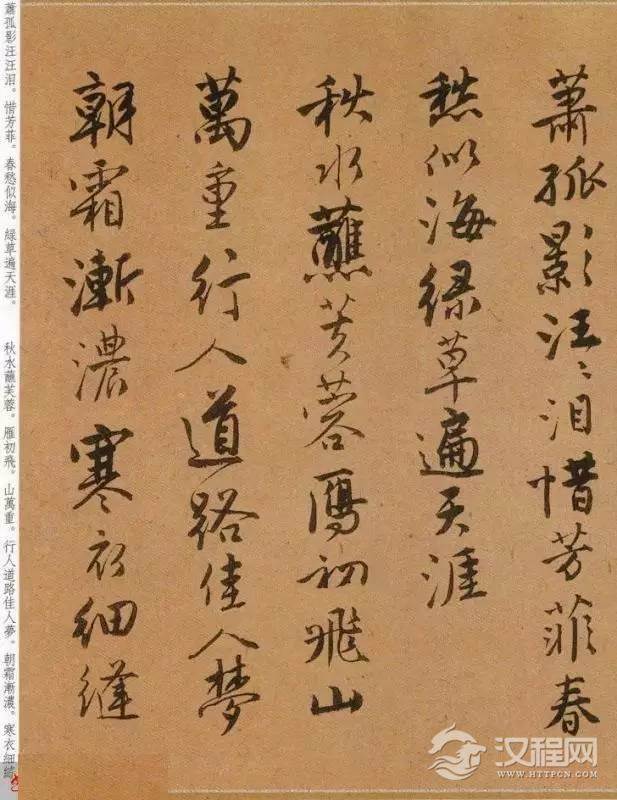 蕭孤影汪汪泪惜芳菲春
愁似海緑草遍天涯
秋水蘸芙蓉鴈初飛山
萬重行人道路佳人夢
朝霜漸濃寒衣細縫
蕭孤影汪汪泪。惜芳菲。春愁似海。緑草遍天涯。 秋水蘸芙蓉。雁初飛。山萬重。行人道路佳人夢。朝霜漸濃。寒衣細縫
汉程网
WWW.HTTPCN.COM